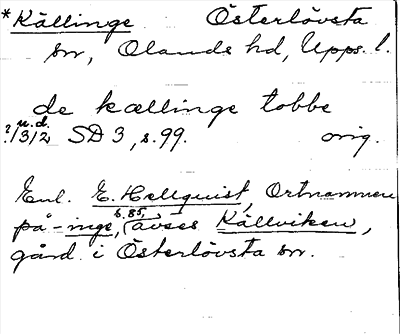 *Källinge Österlövsta
sn, Olands hd, Upps. l.
de kællinge tobbe
u.d.
?/3/2, SD 3, s. 99. orig.
Enl. E. Hellquist, Ortnamnen
s. 85,
på -inge, avses Källviken,
gård i Österlövsta sn.